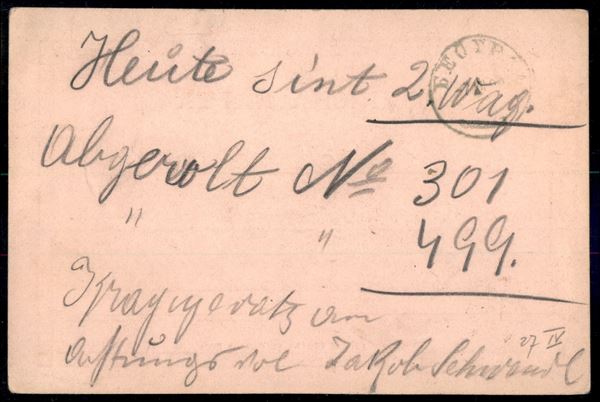 Heute sint 2. Wag.
Abgerolt No 301
" " 499.
am
Jakob Schwandl
27 IV